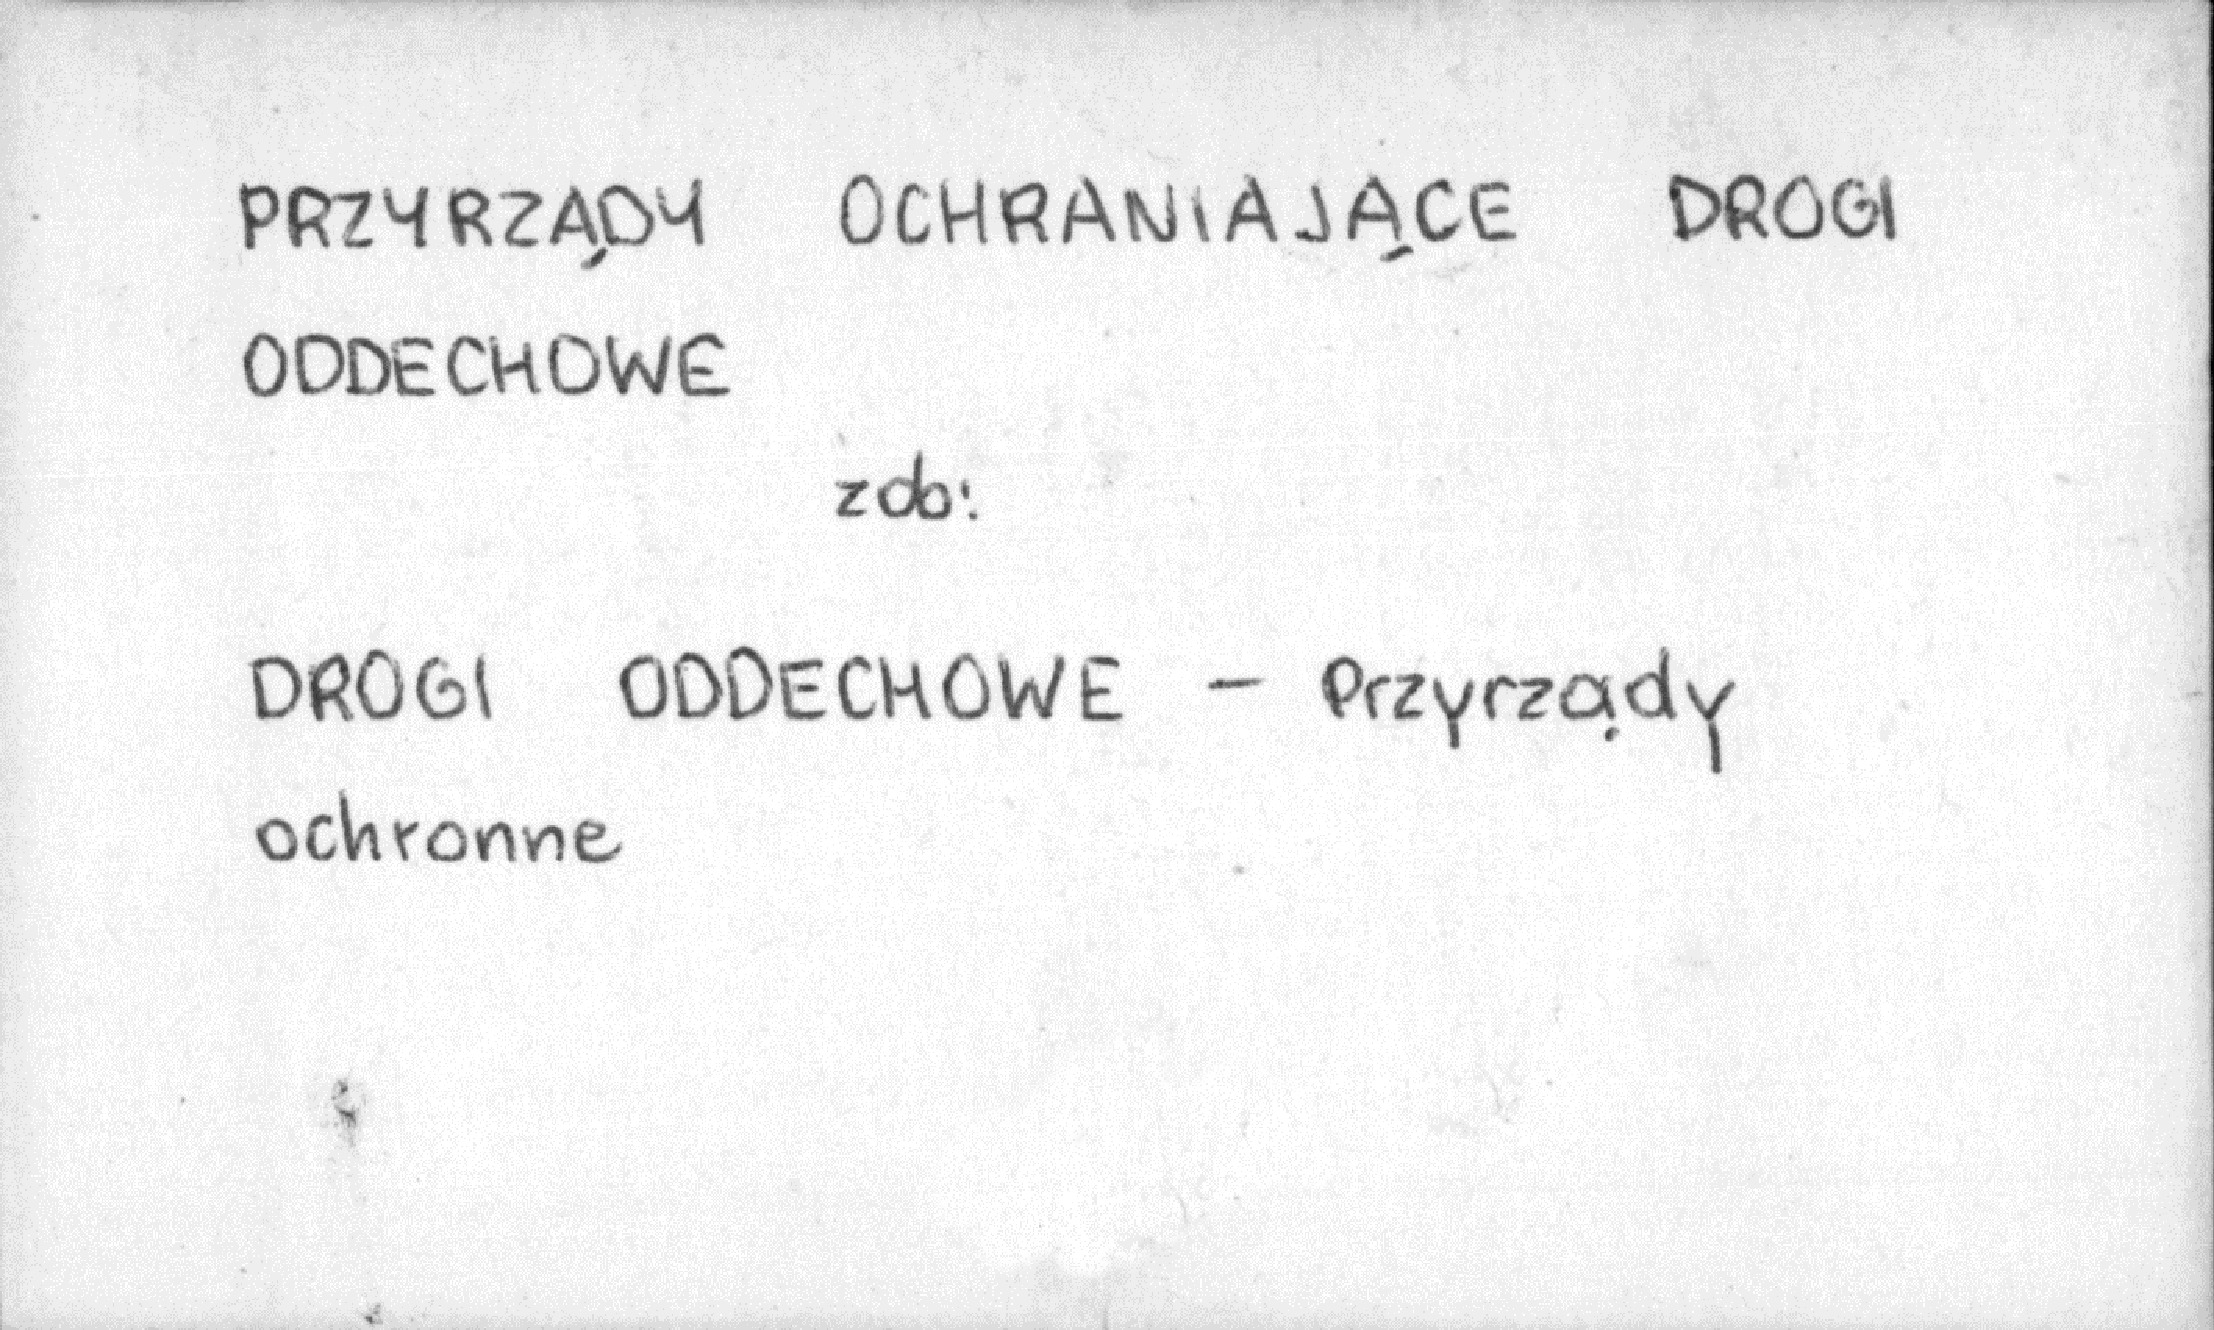 PRZYRZĄDY OCHRANIAJĄCE DROGI
ODDECHOWE
zob:
DROGI ODDECHOWE - Przyrządy
ochronne